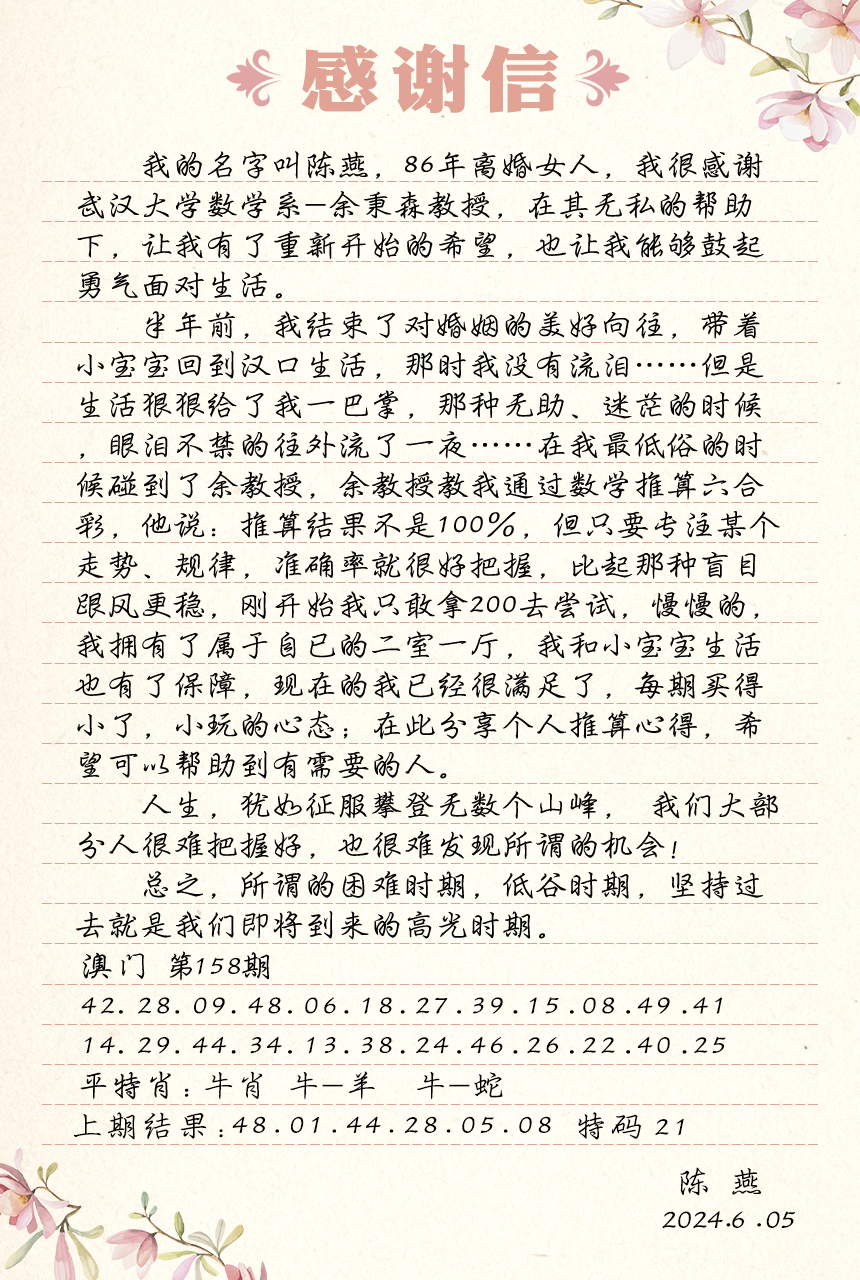 感谢信
我的名字叫陈燕，86年离婚女人，我很感谢
武汉大学数学系—余秉森教授，在其无私的帮助
下，让我有了重新开始的希望，也让我能够鼓起
勇气面对生活。
半年前，我结束了对婚姻的美好向往，带着
小宝宝回到汉口生活，那时我没有流泪……但是
生活狠狠给了我一巴掌，那种无助、迷茫的时候
，眼泪不禁的往外流了一夜……在我最低俗的时
候碰到了余教授，余教授教我通过数学推算六合
彩，他说：推算结果不是100%，但只要专注某个
走势、规律，准确率就很好把握，比起那种盲目
跟风更稳，刚开始我只敢拿200去尝试，慢慢的，
我拥有了属于自已的二室一厅，我和小宝宝生活
也有了保障，现在的我已经很满足了，每期买得
小了，小玩的心态；在此分享个人推算心得，希
望可以帮助到有需要的人。
人生，犹如征服攀登无数个山峰， 我们大部
分人很难把握好，也很难发现所谓的机会！
总之，所谓的困难时期，低谷时期，坚持过
去就是我们即将到来的高光时期。
澳门 第158期
42.28.09.48.06.18.27.39.15.08.49.41
14.29.44.34.13.38.24.46.26.22.40.25
平特肖：牛肖 牛—羊 牛—蛇
上期结果：48.01.44.28.05.08 特码 21
陈 燕
2024.6.05